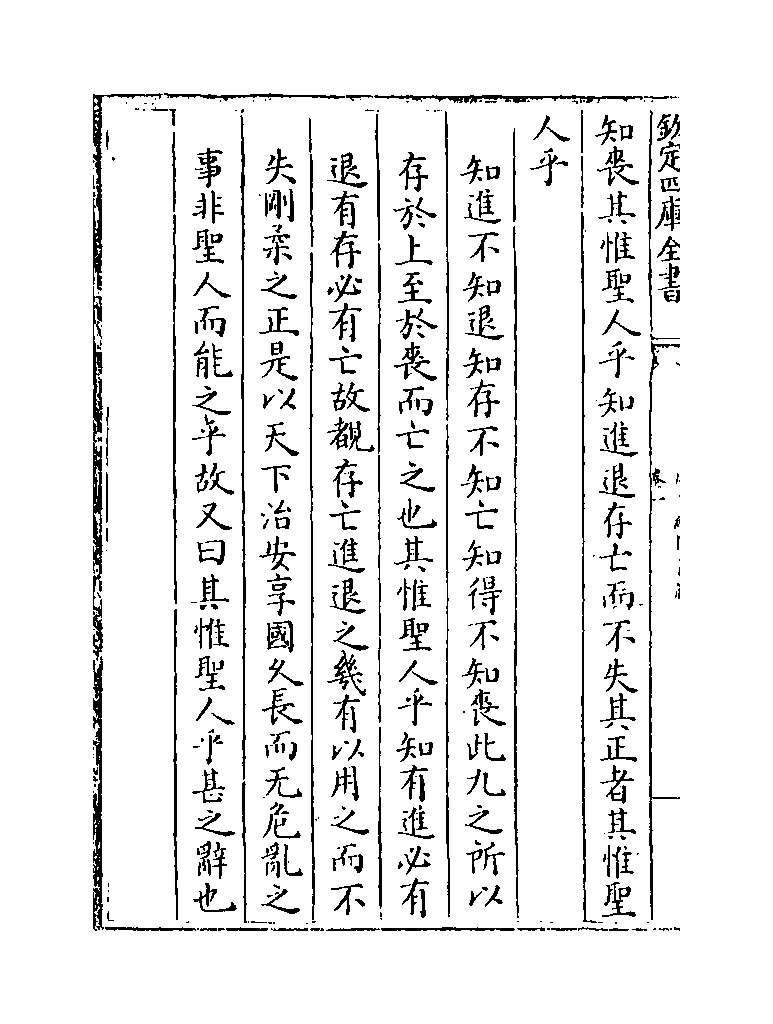 欽定四庫全書
卷一
知喪其惟聖人乎知進退存亡而不失其正者其惟聖
人乎
知進不知退知存不知亡知得不知喪此九之所以
存於上至於喪而亡之也其惟聖人乎知有進必有
退有存必有亡故覩存亡進退之幾有以用之而不
失剛柔之正是以天下治安享國久長而无危亂之
事非聖人而能之乎故又曰其惟聖人乎甚之辭也